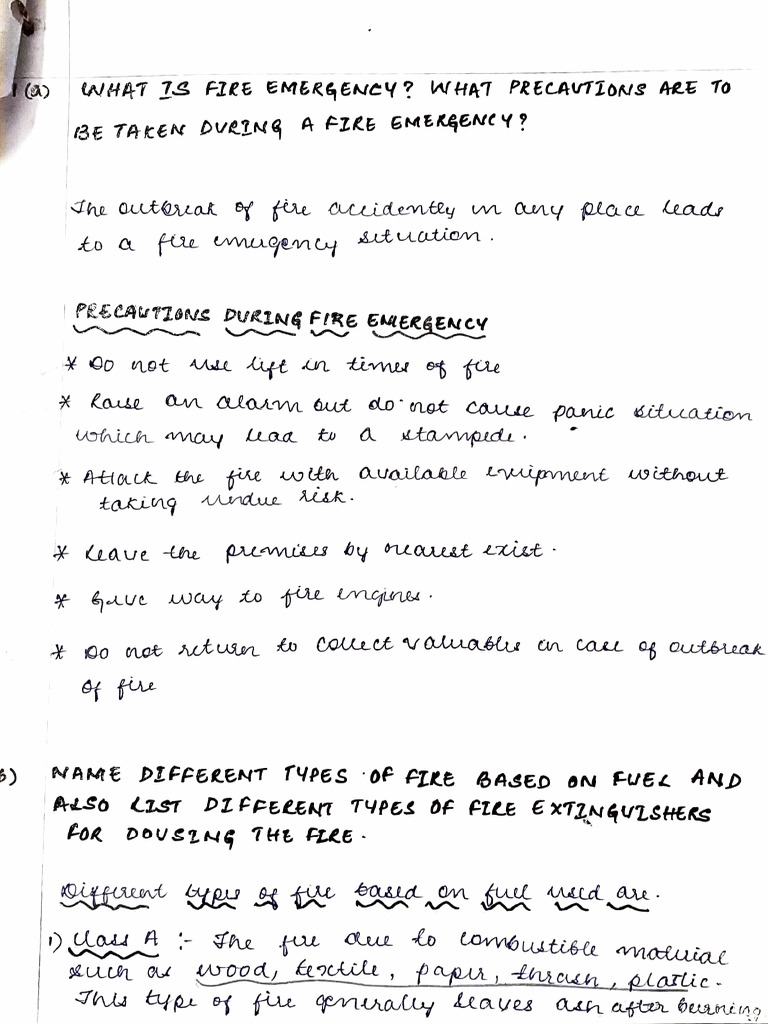 1(a) WHAT IS FIRE EMERGENCY? WHAT PRECAUTIONS ARE TO
BE TAKEN DURING A FIRE EMERGENCY?
The outbreak of fire accidently in any place leads
to a fire emergency situation.
PRECAUTIONS DURING FIRE EMERGENCY
* Do not use lift in times of fire
* Raise an alarm but do not cause panic situation
which may lead to a stampede.
* Attack the fire with available equipment without
taking undue risk.
* Leave the premises by nearest exist.
* Give way to fire engines.
* Do not return to collect valuables in case of outbreak
of fire
b) NAME DIFFERENT TYPES OF FIRE BASED ON FUEL AND
ALSO LIST DIFFERENT TYPES OF FIRE EXTINGUISHERS
FOR DOUSING THE FIRE.
Different types of fire based on fuel used are.
1) Class A :- The fire due to combustible material
such as wood, textile, paper, thrash, plastic.
This type of fire generally leaves ash after burning